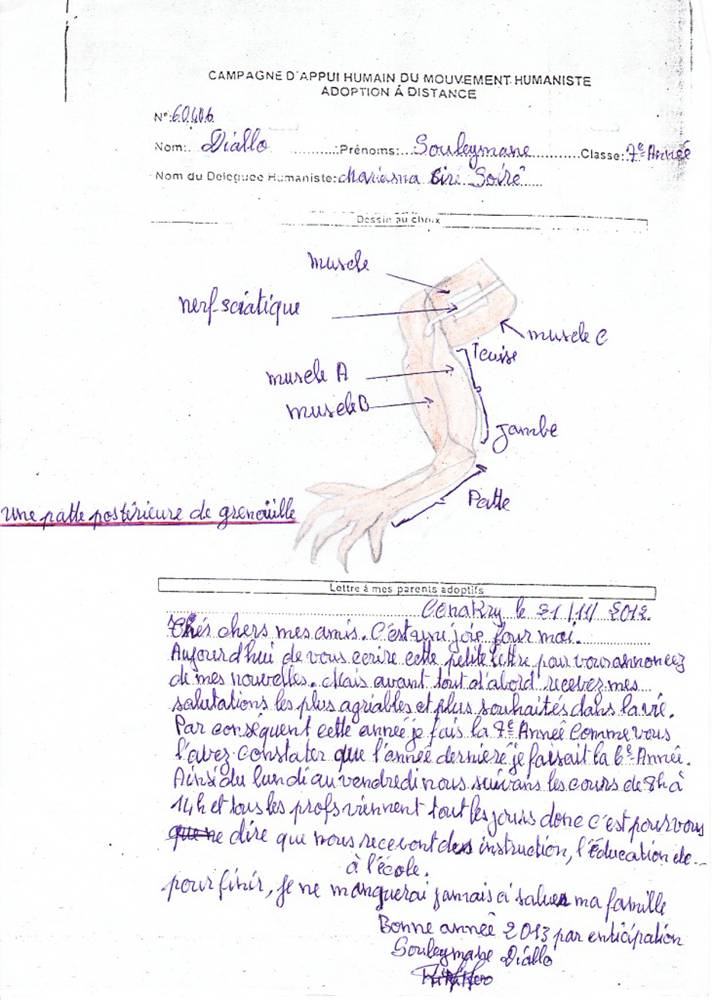 CAMPAGNE D'APPUI HUMAIN DU MOUVEMENT HUMANISTE
ADOPTION Á DISTANCE
N°: 60406
Nom: Diallo Prénoms: Souleymane Classe: 7e Année
Nom du Deleguee Humaniste: Mariama Siré
Dessin au choix
muscle
nerf sciatique
muscle C
Tcuise
muscle A
muscle B
Jambe
Patte
une patte postérieure de grenouille
Lettre à mes parents adoptifs
Conakry, le 21/11/2012.
Chers mes amis. C'est une joie pour moi.
Aujourd'hui de vous ecrire cette petite lettre pour vous annoncez
de mes nouvelles. Mais avant tout d'abord recevez mes
salutations les plus agriables et plus souhaités dans la vie.
Par conséquent cette année je fais la 7e Année Comme vous
l'avez constater que l'année derniere je faisait la 6e Année.
Ainsi du lundi au vendredi nous suivans les cours de 8h à
14h et tous les profs viennent tout les jours donc c'est pour vous
dire que nous recevont des instruction, l'Education de..
à l'école.
pour finir, je ne manquerai jamais à saluer ma famille
Bonne année 2013 par enticipation
Souleymane Diallo